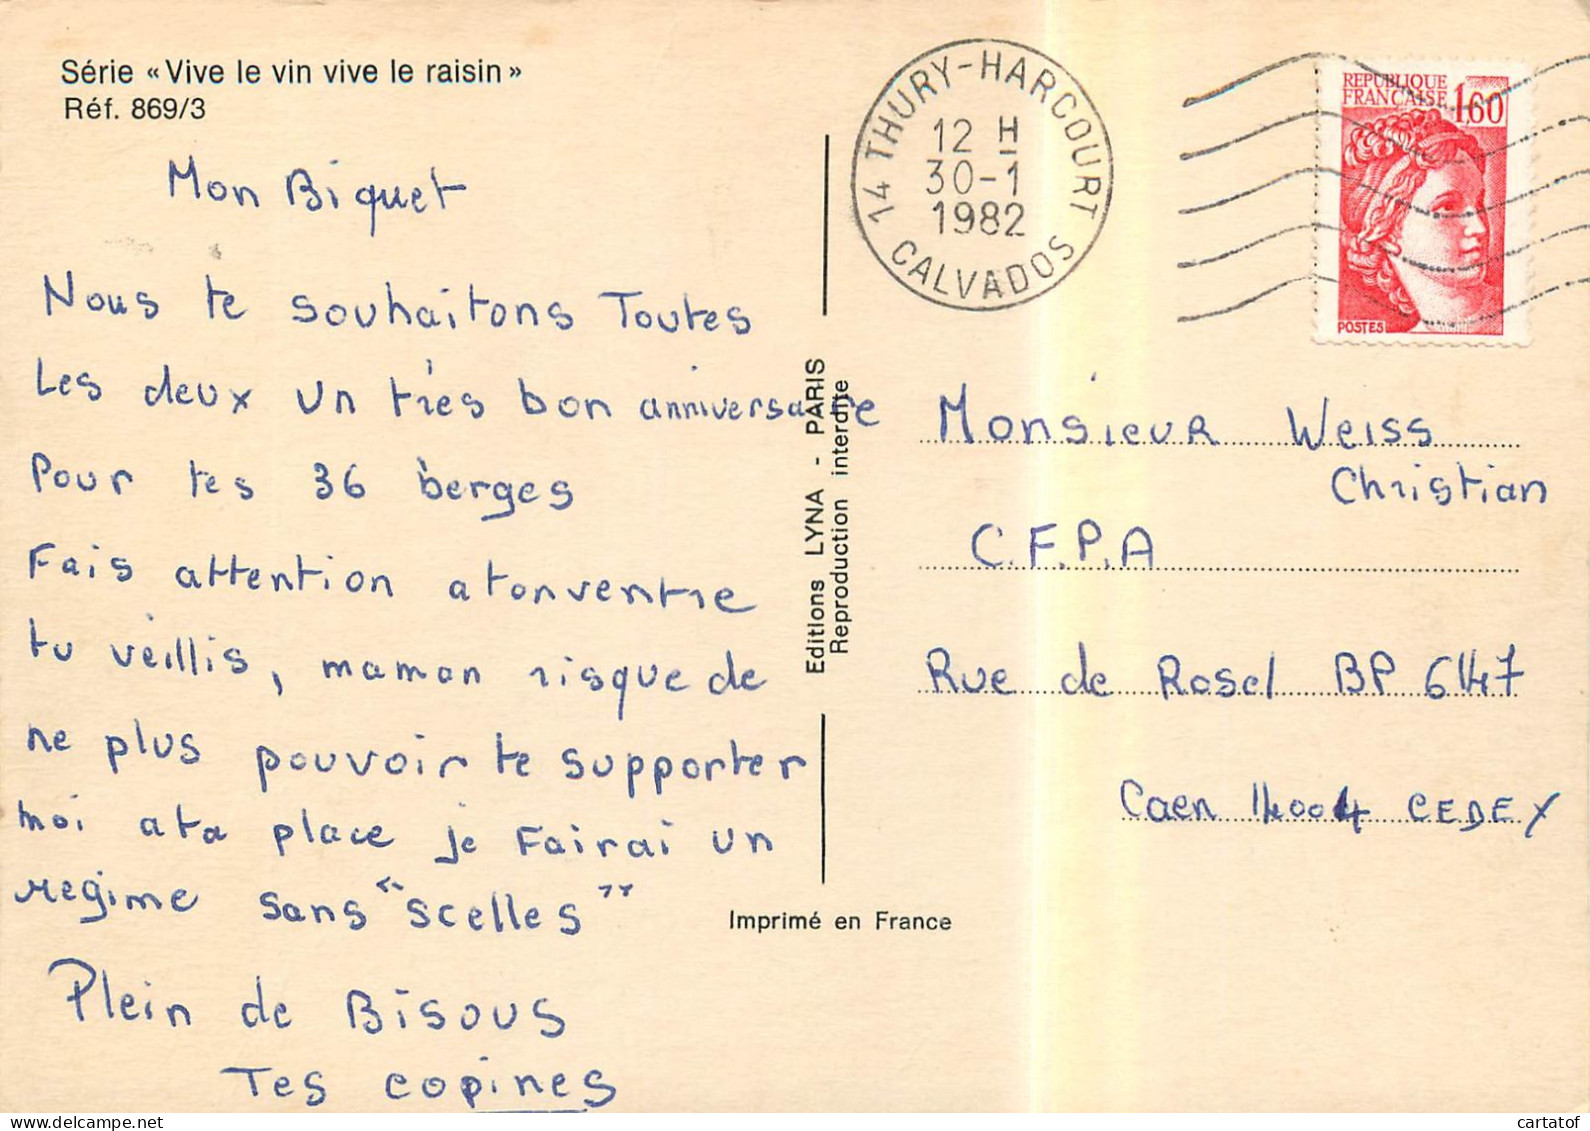 Série « Vive le vin vive le raisin »
Réf. 869/3
Mon Biquet
Nous te souhaitons Toutes
Les deux un très bon anniversaire
Pour tes 36 berges
Fais attention a ton ventre
tu veillis, maman risque de
ne plus pouvoir te supporter
moi a ta place je Fairai un
regime sans "scelles"
Plein de Bisous
Tes copines
Editions LYNA - PARIS
Reproduction interdite
Imprimé en France
14 THURY-HARCOURT
12 H
30-1
1982
CALVADOS
REPUBLIQUE
FRANÇAISE 1,60
POSTES
Monsieur Weiss
Christian
C.F.P.A
Rue de Rosel BP 6147
Caen 14004 CEDEX
www.delcampe.net
cartatof